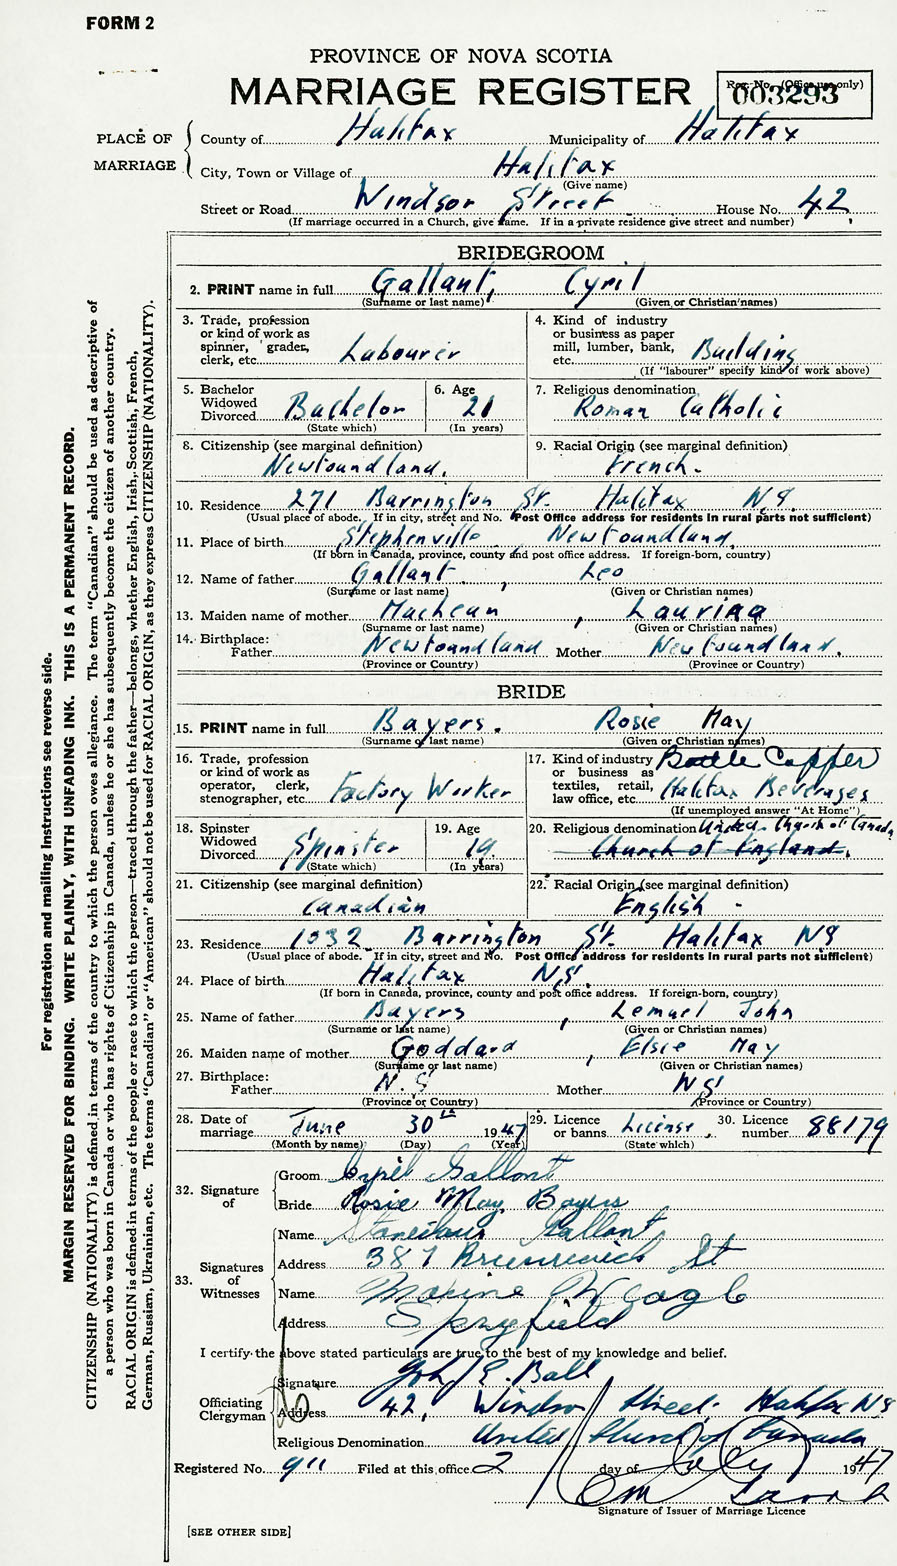 FORM 2
PROVINCE OF NOVA SCOTIA
MARRIAGE REGISTER
Reg. No. (Office use only)
003293
PLACE OF MARRIAGE
County of Halifax Municipality of Halifax
City, Town or Village of Halifax
(Give name)
Street or Road Windsor Street House No. 42
(If marriage occurred in a Church, give name. If in a private residence give street and number)
BRIDEGROOM
2. PRINT name in full Gallant, Cyril
(Surname or last name) (Given or Christian names)
3. Trade, profession
or kind of work as
spinner, grader,
clerk, etc. Labourer
4. Kind of industry
or business as paper
mill, lumber, bank,
etc. Building
(If "labourer" specify kind of work above)
5. Bachelor
Widowed
Divorced Bachelor
(State which)
6. Age
21
(In years)
7. Religious denomination
Roman Catholic
8. Citizenship (see marginal definition)
Newfoundland.
9. Racial Origin (see marginal definition)
French.
10. Residence 271 Barrington St. Halifax NS.
(Usual place of abode. If in city, street and No. Post Office address for residents in rural parts not sufficient)
11. Place of birth Stephenville Newfoundland.
(If born in Canada, province, county and post office address. If foreign-born, country)
12. Name of father Gallant, Leo
(Surname or last name) (Given or Christian names)
13. Maiden name of mother , Laurina
(Surname or last name) (Given or Christian names)
14. Birthplace:
Father Newfoundland Mother Newfoundland.
(Province or Country) (Province or Country)
BRIDE
15. PRINT name in full Bayers. Rosie May
(Surname or last name) (Given or Christian names)
16. Trade, profession
or kind of work as
operator, clerk,
stenographer, etc. Factory Worker
17. Kind of industry
or business as
textiles, retail,
law office, etc. Bottle Capper
Halifax Beverages
(If unemployed answer "At Home")
18. Spinster
Widowed
Divorced Spinster
(State which)
19. Age
19.
(In years)
20. Religious denomination United Church of Canada
Church of England.
21. Citizenship (see marginal definition)
Canadian
22. Racial Origin (see marginal definition)
English -
23. Residence 1032 Barrington St. Halifax NS
(Usual place of abode. If in city, street and No. Post Office address for residents in rural parts not sufficient)
24. Place of birth Halifax NS.
(If born in Canada, province, county and post office address. If foreign-born, country)
25. Name of father Bayers, Lemuel John
(Surname or last name) (Given or Christian names)
26. Maiden name of mother Goddard, Elsie May
(Surname or last name) (Given or Christian names)
27. Birthplace:
Father N.S. Mother NS
(Province or Country) (Province or Country)
28. Date of
marriage June 30th 1947
(Month by name) (Day) (Year)
29. Licence
or banns License.
(State which)
30. Licence
number 88179
32. Signature
of
Groom Cyril Gallant
Bride Rosie May Bayers
33. Signatures
of
Witnesses
Name Stanislaus Gallant
Address 387 Brunswick St
Name Maxine Weagle
Address Spryfield
I certify the above stated particulars are true to the best of my knowledge and belief.
Officiating
Clergyman
Signature John E. Ball
Address 42, Windsor Street. Halifax NS
Religious Denomination United Church of Canada
Registered No. 911 Filed at this office 2 day of July 1947
Signature of Issuer of Marriage Licence
[SEE OTHER SIDE]
For registration and mailing instructions see reverse side.
MARGIN RESERVED FOR BINDING. WRITE PLAINLY, WITH UNFADING INK. THIS IS A PERMANENT RECORD.
CITIZENSHIP (NATIONALITY) is defined in terms of the country to which the person owes allegiance. The term "Canadian" should be used as descriptive of
a person who was born in Canada or who has rights of Citizenship in Canada, unless he or she has subsequently become the citizen of another country.
RACIAL ORIGIN is defined in terms of the people or race to which the person—traced through the father—belongs, whether English, Irish, Scottish, French,
German, Russian, Ukrainian, etc. The terms "Canadian" or "American" should not be used for RACIAL ORIGIN, as they express CITIZENSHIP (NATIONALITY).